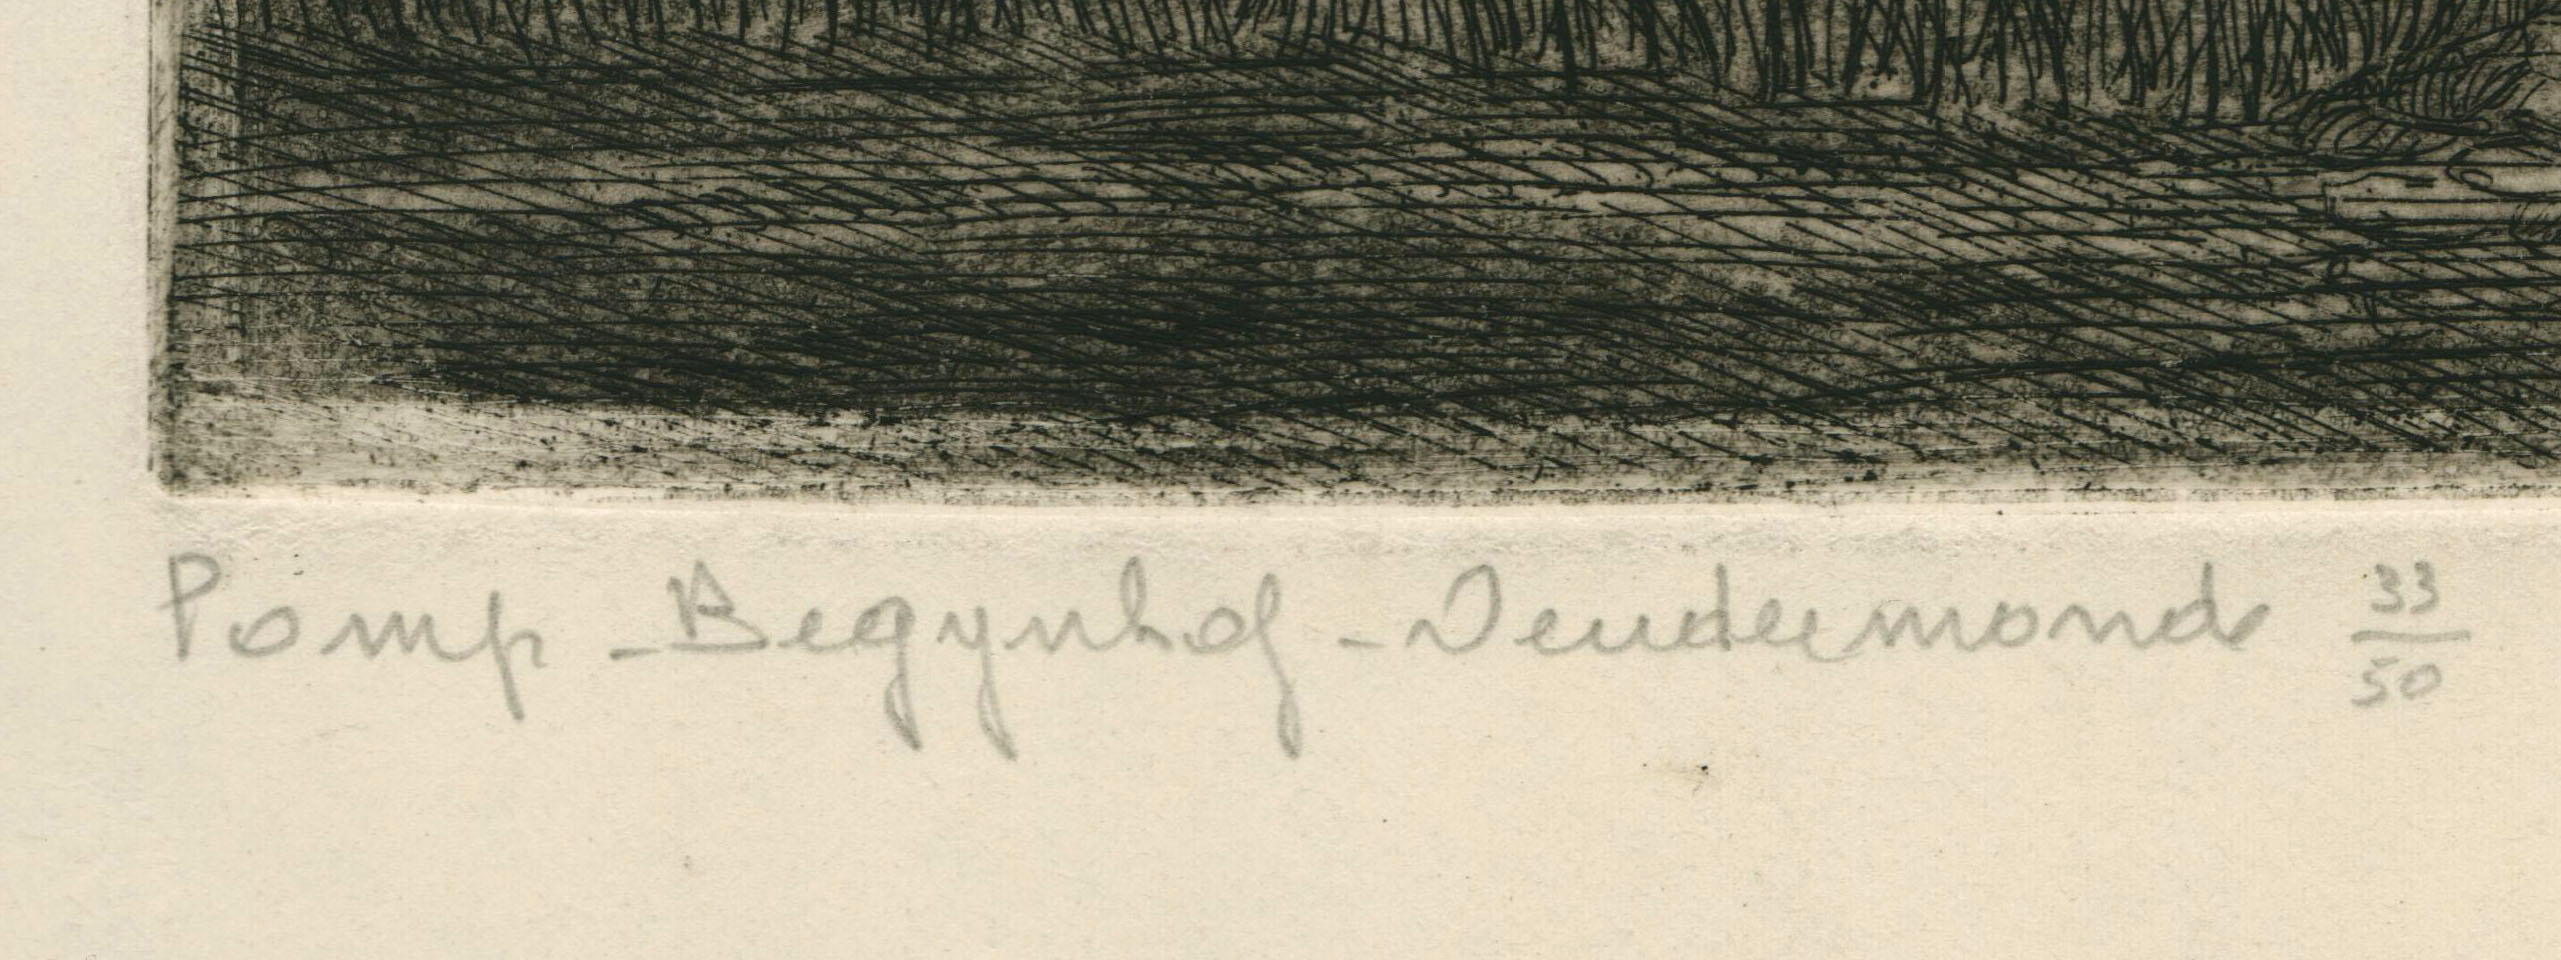 Pomp - Begynhof - Dendermonde 33/50